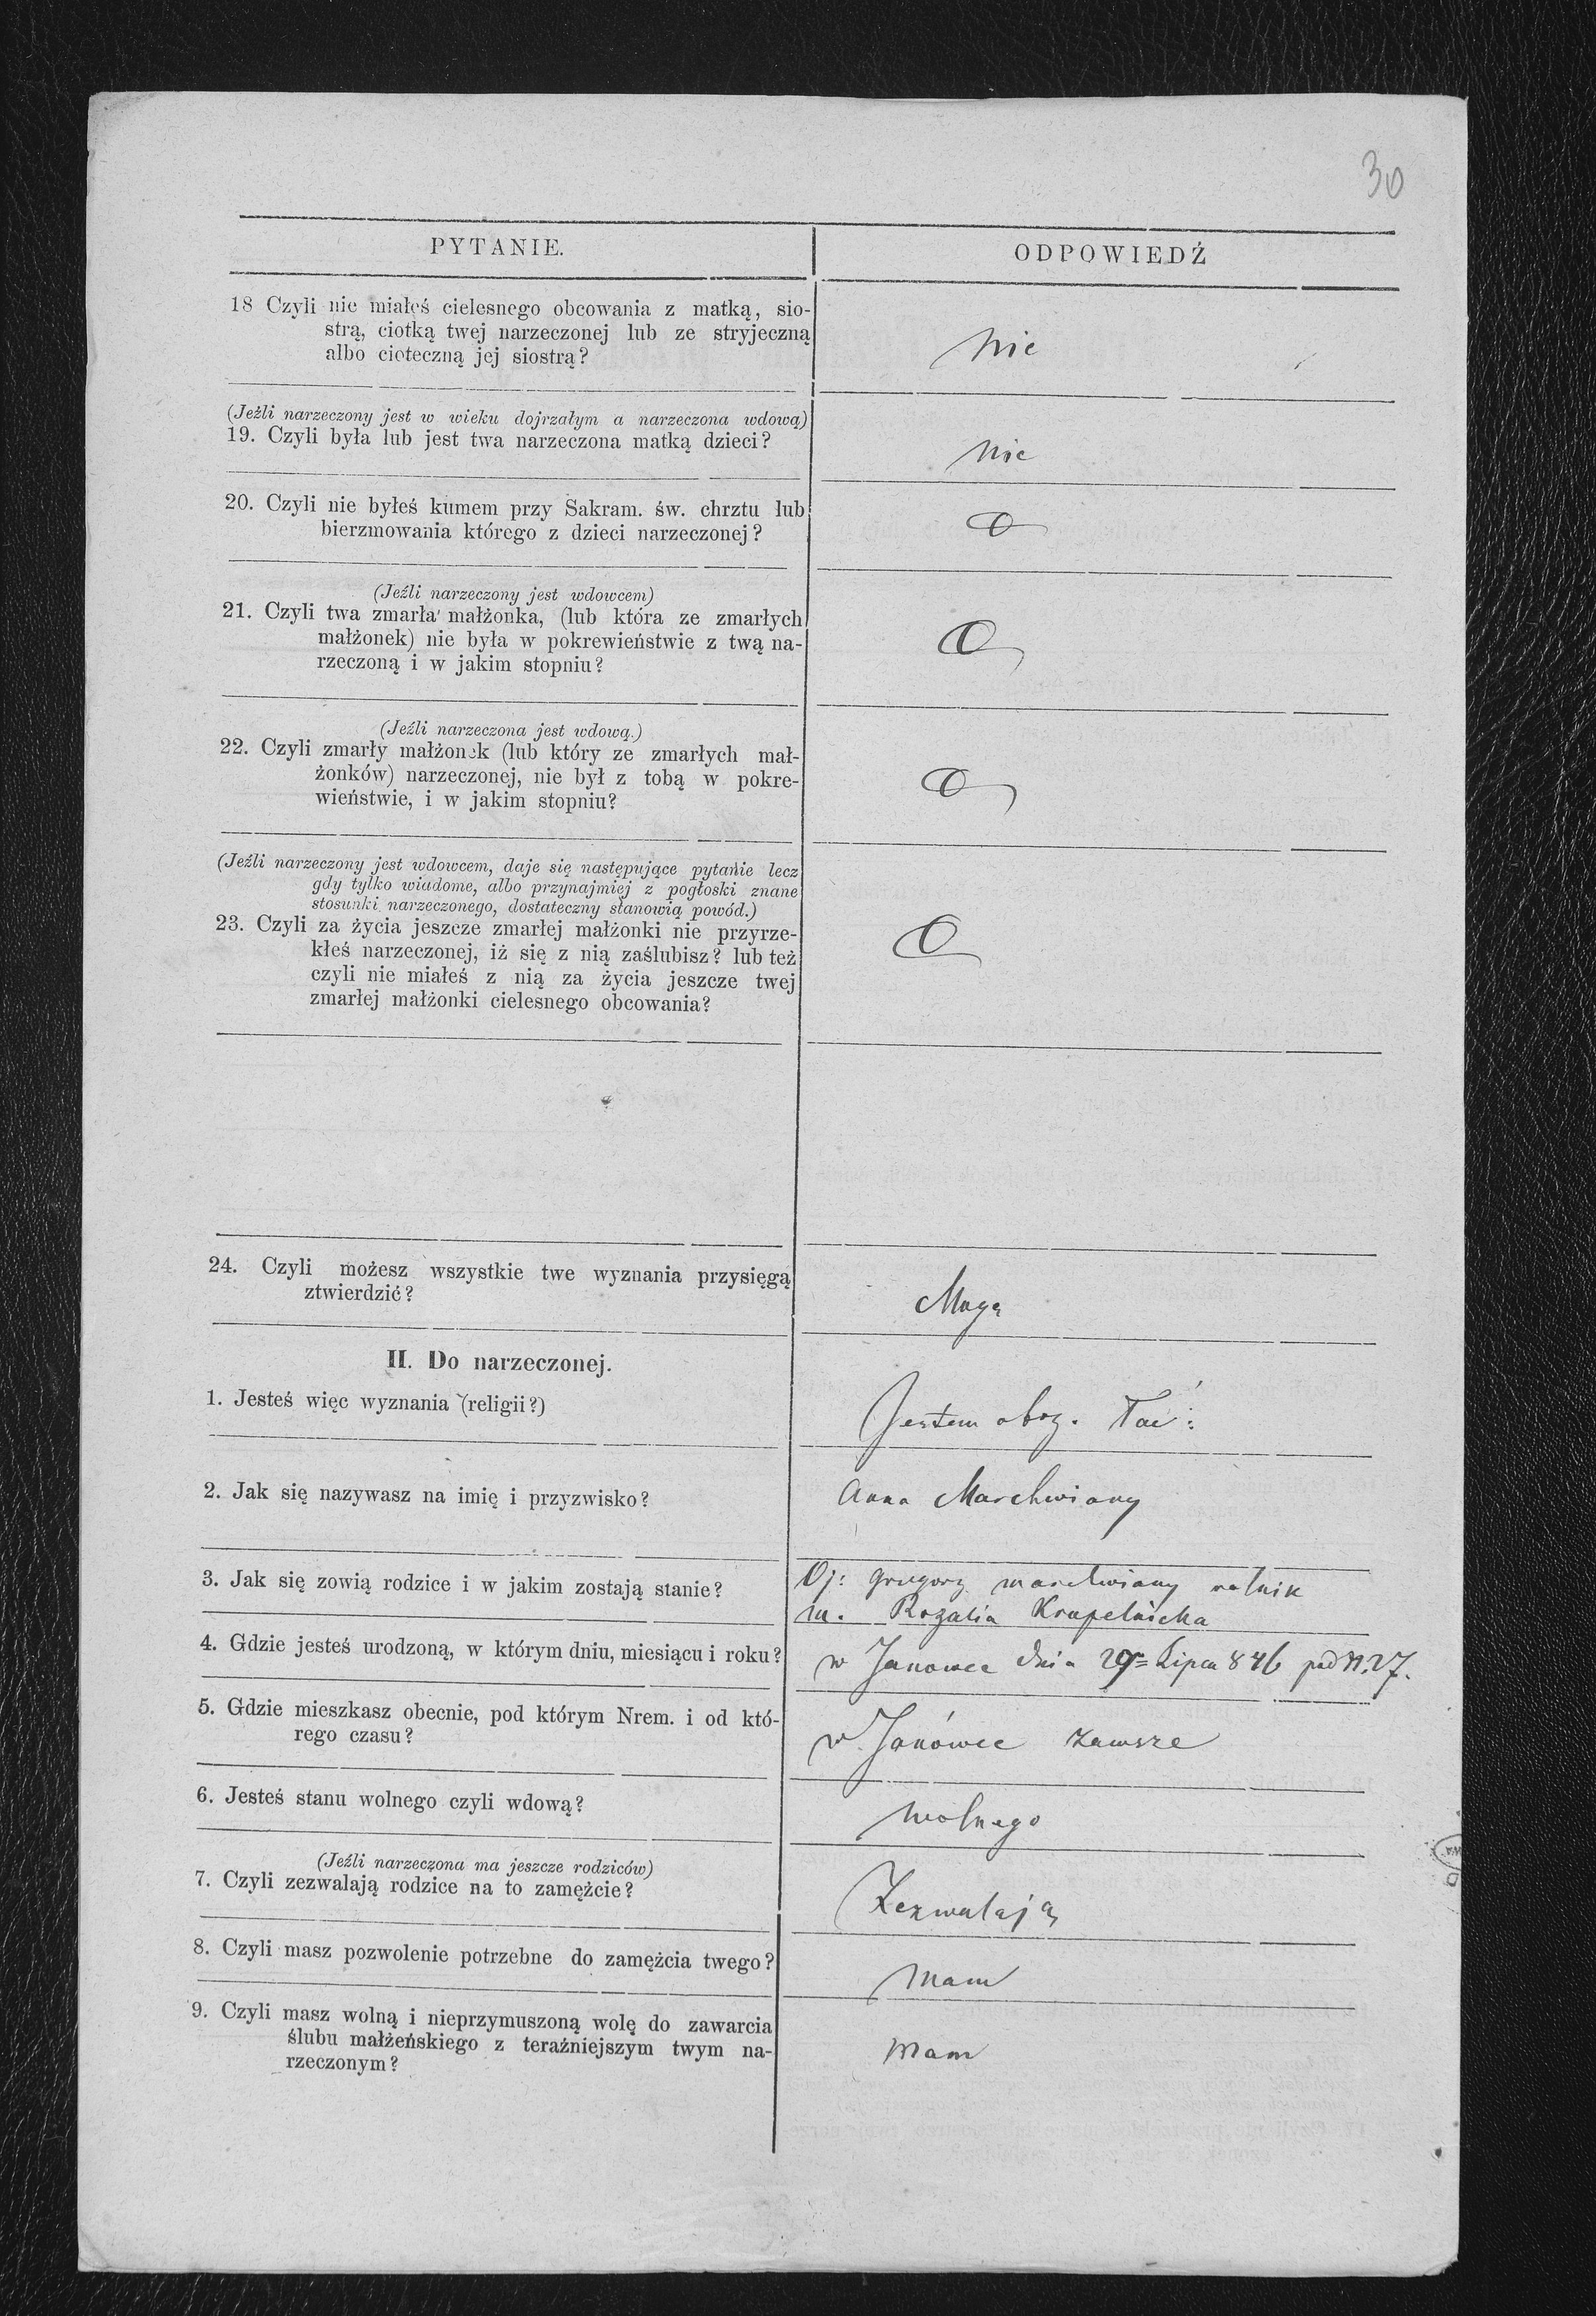 30
PYTANIE.
ODPOWIEDŹ
18 Czyli nie miałeś cielesnego obcowania z matką, sio-
strą, ciotką twej narzeczonej lub ze stryjeczną
albo cioteczną jej siostrą?
Nie
(Jeźli narzeczony jest w wieku dojrzałym a narzeczona wdową)
19. Czyli była lub jest twa narzeczona matką dzieci?
Nie
20. Czyli nie byłeś kumem przy Sakram. św. chrztu lub
bierzmowania którego z dzieci narzeczonej?
O
(Jeźli narzeczony jest wdowcem)
21. Czyli twa zmarła małżonka, (lub która ze zmarłych
małżonek) nie była w pokrewieństwie z twą na-
rzeczoną i w jakim stopniu?
O
(Jeźli narzeczona jest wdową.)
22. Czyli zmarły małżonek (lub który ze zmarłych mał-
żonków) narzeczonej, nie był z tobą w pokre-
wieństwie, i w jakim stopniu?
O
(Jeźli narzeczony jest wdowcem, daje się następujące pytanie lecz
gdy tylko wiadome, albo przynajmiej z pogłoski znane
stosunki narzeczonego, dostateczny stanowią powód.)
23. Czyli za życia jeszcze zmarłej małżonki nie przyrze-
kłeś narzeczonej, iż się z nią zaślubisz? lub też
czyli nie miałeś z nią za życia jeszcze twej
zmarłej małżonki cielesnego obcowania?
O
24. Czyli możesz wszystkie twe wyznania przysięgą
ztwierdzić?
Mogę
II. Do narzeczonej.
1. Jesteś więc wyznania (religii?)
Jestem obrz. łać:
2. Jak się nazywasz na imię i przyzwisko?
Anna Marchwiany
3. Jak się zowią rodzice i w jakim zostają stanie?
Oj: Grzegorz Marchwiany rolnik
m. Rozalia Krupelnicka
4. Gdzie jesteś urodzoną, w którym dniu, miesiącu i roku?
w Janowce dnia 29= Lipca 846 pod N. 27.
5. Gdzie mieszkasz obecnie, pod którym Nrem. i od któ-
rego czasu?
w Janówce zawsze
6. Jesteś stanu wolnego czyli wdową?
Wolnego
(Jeźli narzeczona ma jeszcze rodziców)
7. Czyli zezwalają rodzice na to zamężcie?
Zezwalają
8. Czyli masz pozwolenie potrzebne do zamężcia twego?
Mam
9. Czyli masz wolną i nieprzymuszoną wolę do zawarcia
ślubu małżeńskiego z teraźniejszym twym na-
rzeczonym?
Mam